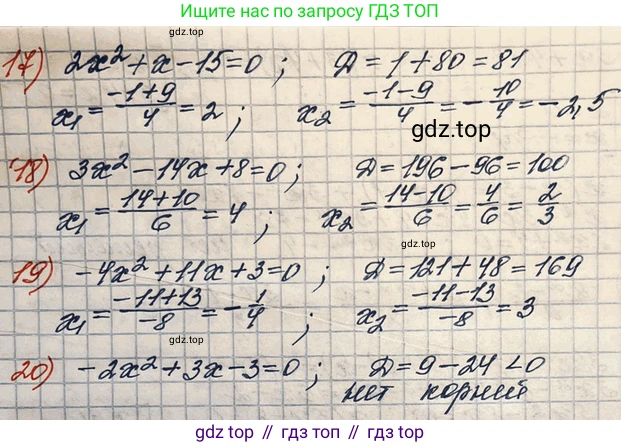 Ищите нас по запросу ГДЗ ТОП
gdz.top
17) 2x² + x - 15 = 0 ; Д = 1 + 80 = 81
x₁ = (-1+9)/4 = 2 ; x₂ = (-1-9)/4 = -10/4 = -2,5
gdz.top
18) 3x² - 14x + 8 = 0 ; Д = 196 - 96 = 100
x₁ = (14+10)/6 = 4 ; x₂ = (14-10)/6 = 4/6 = 2/3
gdz.top
19) -4x² + 11x + 3 = 0 ; Д = 121 + 48 = 169
x₁ = (-11+13)/-8 = -1/4 ; x₂ = (-11-13)/-8 = 3
gdz.top
20) -2x² + 3x - 3 = 0 ; Д = 9 - 24 < 0
нет корней
gdz.top // гдз.топ // gdz.top // гдз.топ